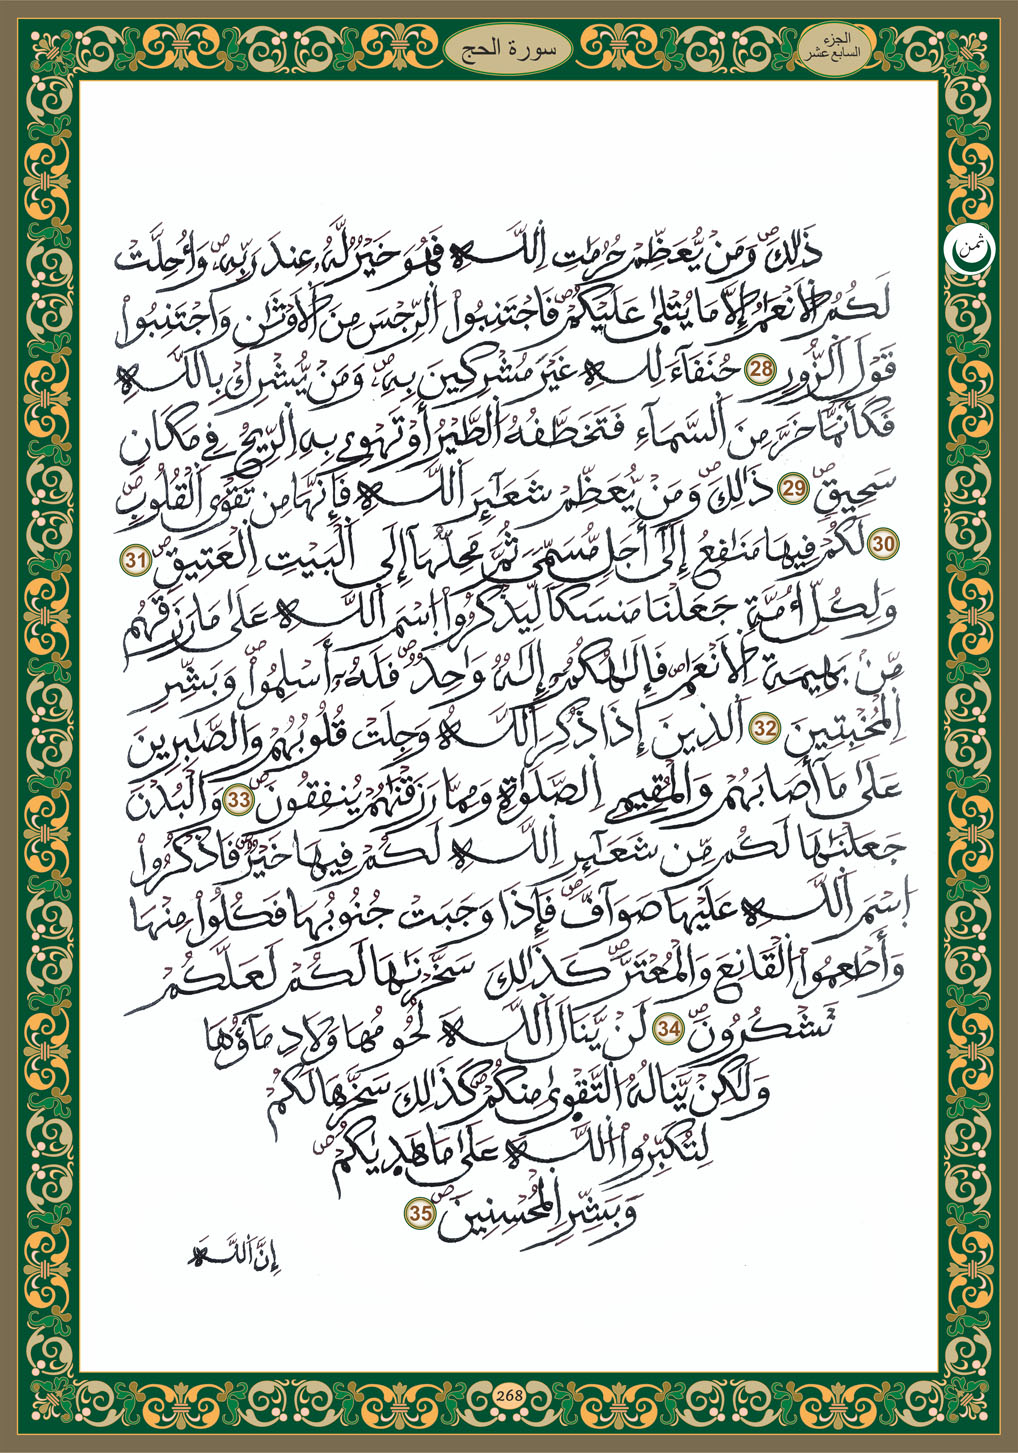 سورة الحج
الجزء
السابع عشر
ثمن
ذَٰلِكَۖ وَمَنْ يُّعَظِّمْ حُرُمَٰتِ اِ۬للَّهِ فَهُوَ خَيْرٞ لَّهُۥ عِندَ رَبِّهِۦۖ وَأُحِلَّتْ
لَكُمُ اُ۬لَانْعَٰمُ إِلَّا مَا يُتْلَىٰ عَلَيْكُمْۖ فَاجْتَنِبُواْ اُ۬لرِّجْسَ مِنَ اَ۬لَاوْثَٰنِ وَاجْتَنِبُواْ
قَوْلَ اَ۬لزُّورِ 28 حُنَفَآءَ لِلهِ غَيْرَ مُشْرِكِينَ بِهِۦۖ وَمَنْ يُّشْرِكْ بِاللَّهِ
فَكَأَنَّمَا خَرَّ مِنَ اَ۬لسَّمَآءِ فَتَخَطَّفُهُ اُ۬لطَّيْرُ أَوْ تَهْوِے بِهِ اِ۬لرِّيحُ فِے مَكَانٖ
سَحِيقٖۖ 29 ذَٰلِكَۖ وَمَنْ يُّعَظِّمْ شَعَٰٓئِرَ اَ۬للَّهِ فَإِنَّهَا مِن تَقْوَى اَ۬لْقُلُوبِۖ
30 لَكُمْ فِيهَا مَنَٰفِعُ إِلَىٰٓ أَجَلٖ مُّسَمّىٗ ثُمَّ مَحِلُّهَآ إِلَى اَ۬لْبَيْتِ اِ۬لْعَتِيقِۖ 31
وَلِكُلِّ أُمَّةٖ جَعَلْنَا مَنسَكاٗ لِّيَذْكُرُواْ اُ۪سْمَ اَ۬للَّهِ عَلَىٰ مَا رَزَقَهُم
مِّنۢ بَهِيمَةِ اِ۬لَانْعَٰمِۖ فَإِلَٰهُكُمُۥٓ إِلَٰهٞ وَٰحِدٞۖ فَلَهُۥٓ أَسْلِمُواْۖ وَبَشِّرِ
اِ۬لْمُخْبِتِينَ 32 اَ۬لذِينَ إِذَا ذُكِرَ اَ۬للَّهُ وَجِلَتْ قُلُوبُهُمْ وَالصَّٰبِرِينَ
عَلَىٰ مَآ أَصَابَهُمْ وَالْمُقِيمِے اِ۬لصَّلَوٰةِ وَمِمَّا رَزَقْنَٰهُمْ يُنفِقُونَۖ 33 وَالْبُدْنَ
جَعَلْنَٰهَا لَكُم مِّن شَعَٰٓئِرِ اِ۬للَّهِ لَكُمْ فِيهَا خَيْرٞۖ فَاذْكُرُواْ
اُ۪سْمَ اَ۬للَّهِ عَلَيْهَا صَوَآفَّۖ فَإِذَا وَجَبَتْ جُنُوبُهَا فَكُلُواْ مِنْهَا
وَأَطْعِمُواْ اُ۬لْقَانِعَ وَالْمُعْتَرَّۖ كَذَٰلِكَ سَخَّرْنَٰهَا لَكُمْ لَعَلَّكُمْ
تَشْكُرُونَۖ 34 لَنْ يَّنَالَ اَ۬للَّهَ لُحُومُهَا وَلَا دِمَآؤُهَا
وَلَٰكِنْ يَّنَالُهُ اُ۬لتَّقْوَىٰ مِنكُمْۖ كَذَٰلِكَ سَخَّرَهَا لَكُمْ
لِتُكَبِّرُواْ اُ۬للَّهَ عَلَىٰ مَا هَدَىٰكُمْۖ
وَبَشِّرِ اِ۬لْمُحْسِنِينَۖ 35
إِنَّ اَ۬للَّهَ
268